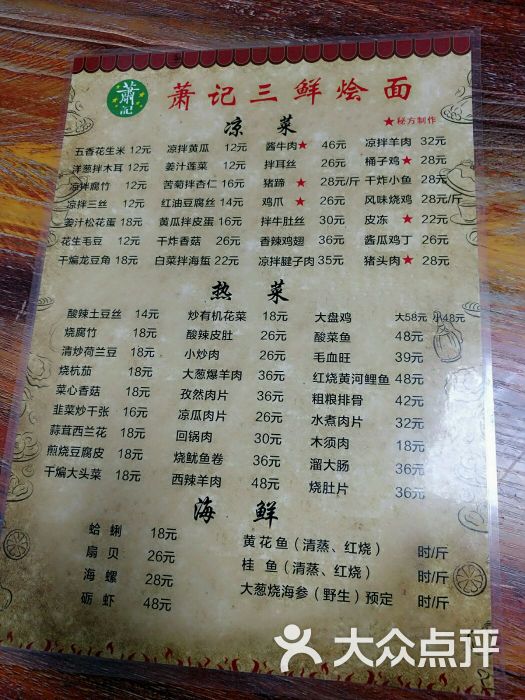 萧记
萧记三鲜烩面
★秘方制作
凉 菜
五香花生米 12元 凉拌黄瓜 12元 酱牛肉★ 46元 凉拌羊肉 32元
洋葱拌木耳 12元 姜汁莲菜 12元 拌耳丝 26元 桶子鸡★ 28元
凉拌腐竹 12元 苦菊拌杏仁 16元 猪蹄★ 28元/斤 干炸小鱼 28元
凉拌三丝 12元 红油豆腐丝 14元 鸡爪★ 26元 风味烧鸡 28元/斤
姜汁松花蛋 18元 黄瓜拌皮蛋 18元 拌牛肚丝 30元 皮冻★ 22元
花生毛豆 12元 干炸香菇 26元 香辣鸡翅 36元 酱瓜鸡丁 26元
干煸龙豆角 18元 白菜拌海蜇 22元 凉拌腱子肉 35元 猪头肉★ 28元
热 菜
酸辣土豆丝 14元 炒有机花菜 18元 大盘鸡 大58元 小48元
烧腐竹 18元 酸辣皮肚 26元 酸菜鱼 48元
清炒荷兰豆 18元 小炒肉 26元 毛血旺 39元
烧杭茄 18元 大葱爆羊肉 36元 红烧黄河鲤鱼 48元
菜心香菇 18元 孜然肉片 36元 粗粮排骨 42元
韭菜炒千张 16元 凉瓜肉片 26元 水煮肉片 32元
蒜茸西兰花 18元 回锅肉 30元 木须肉 18元
煎烧豆腐皮 18元 烧鱿鱼卷 36元 溜大肠 36元
干煸大头菜 18元 西辣羊肉 48元 烧肚片 36元
海 鲜
蛤 蜊 18元 黄花鱼（清蒸、红烧） 时/斤
扇 贝 26元 桂 鱼（清蒸、红烧） 时/斤
海 螺 28元 大葱烧海参（野生）预定 时/斤
砺 虾 48元
大众点评